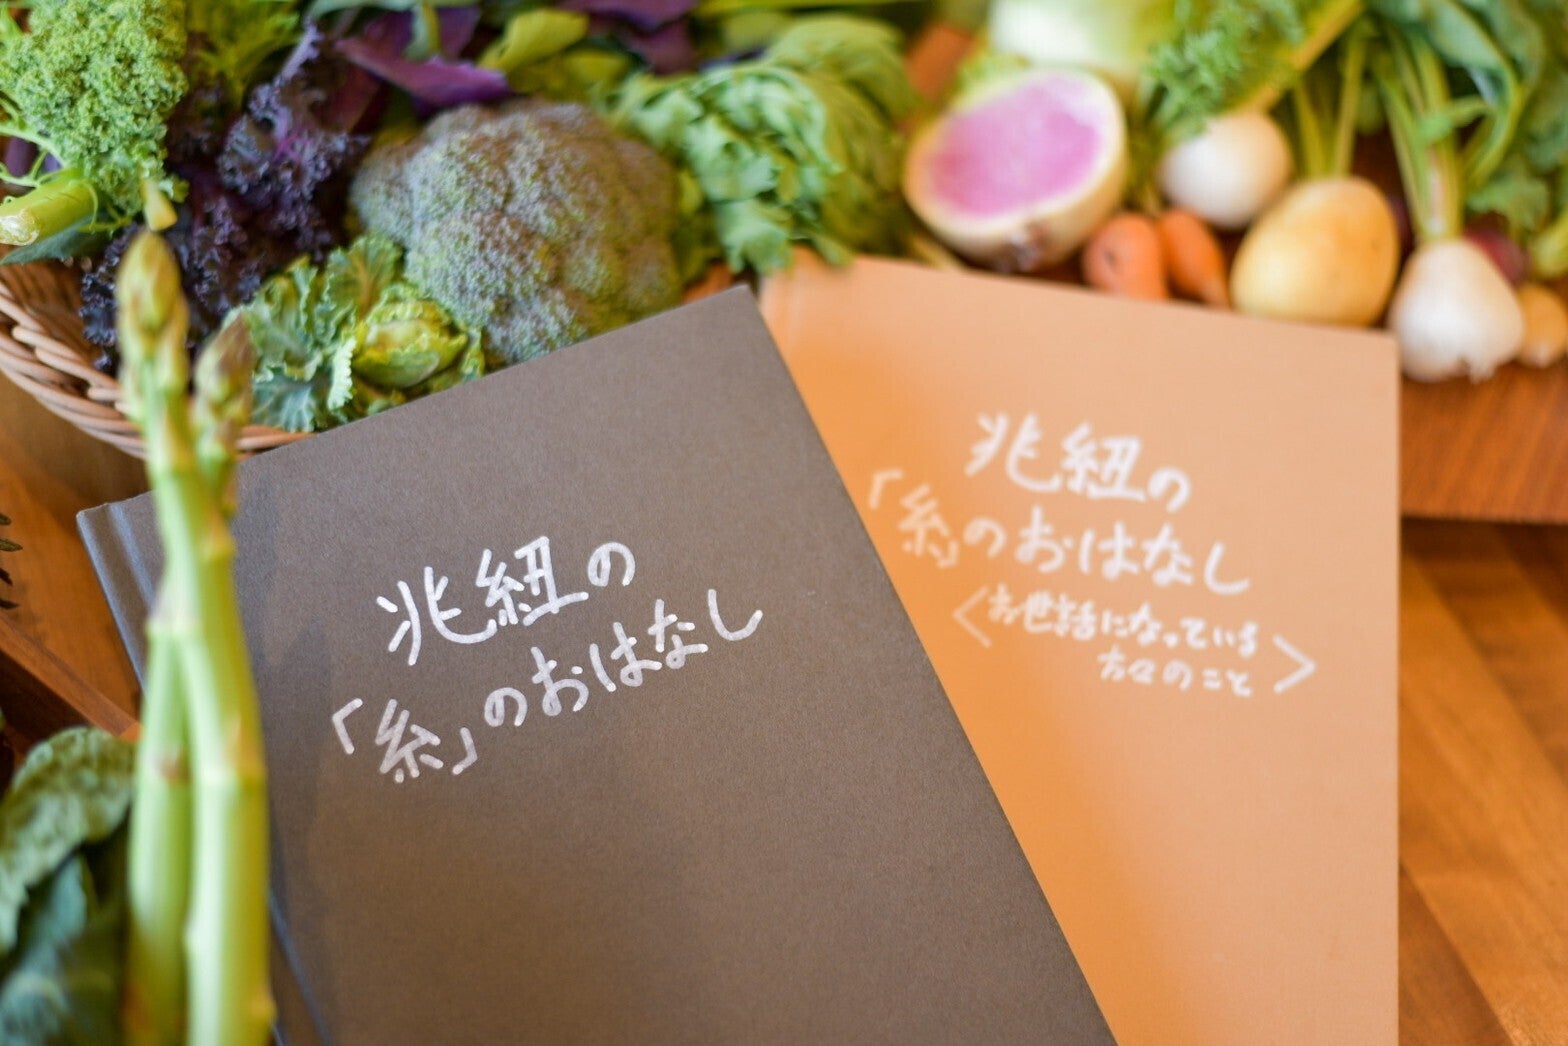 兆紐の
「糸」のおはなし
兆紐の
「糸」のおはなし
<お世話になっている
方々のこと>